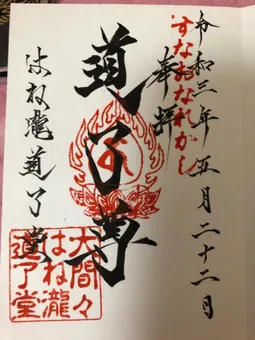 令和三年五月二十二月
すなおなれかし
奉拝
道了尊
はね瀧道了堂
大間々
はね瀧
道了堂